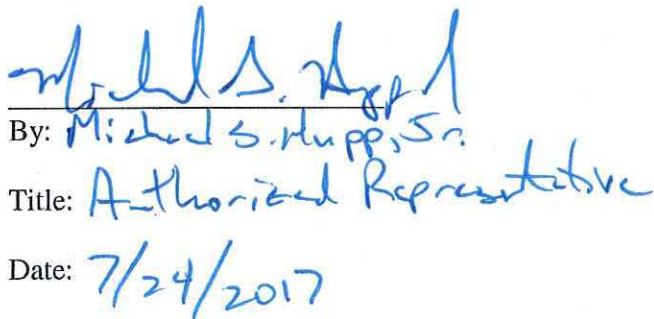 Michael S. Hupp
By: Michael S. Hupp, Sr.
Title: Authorized Representative
Date: 7/24/2017